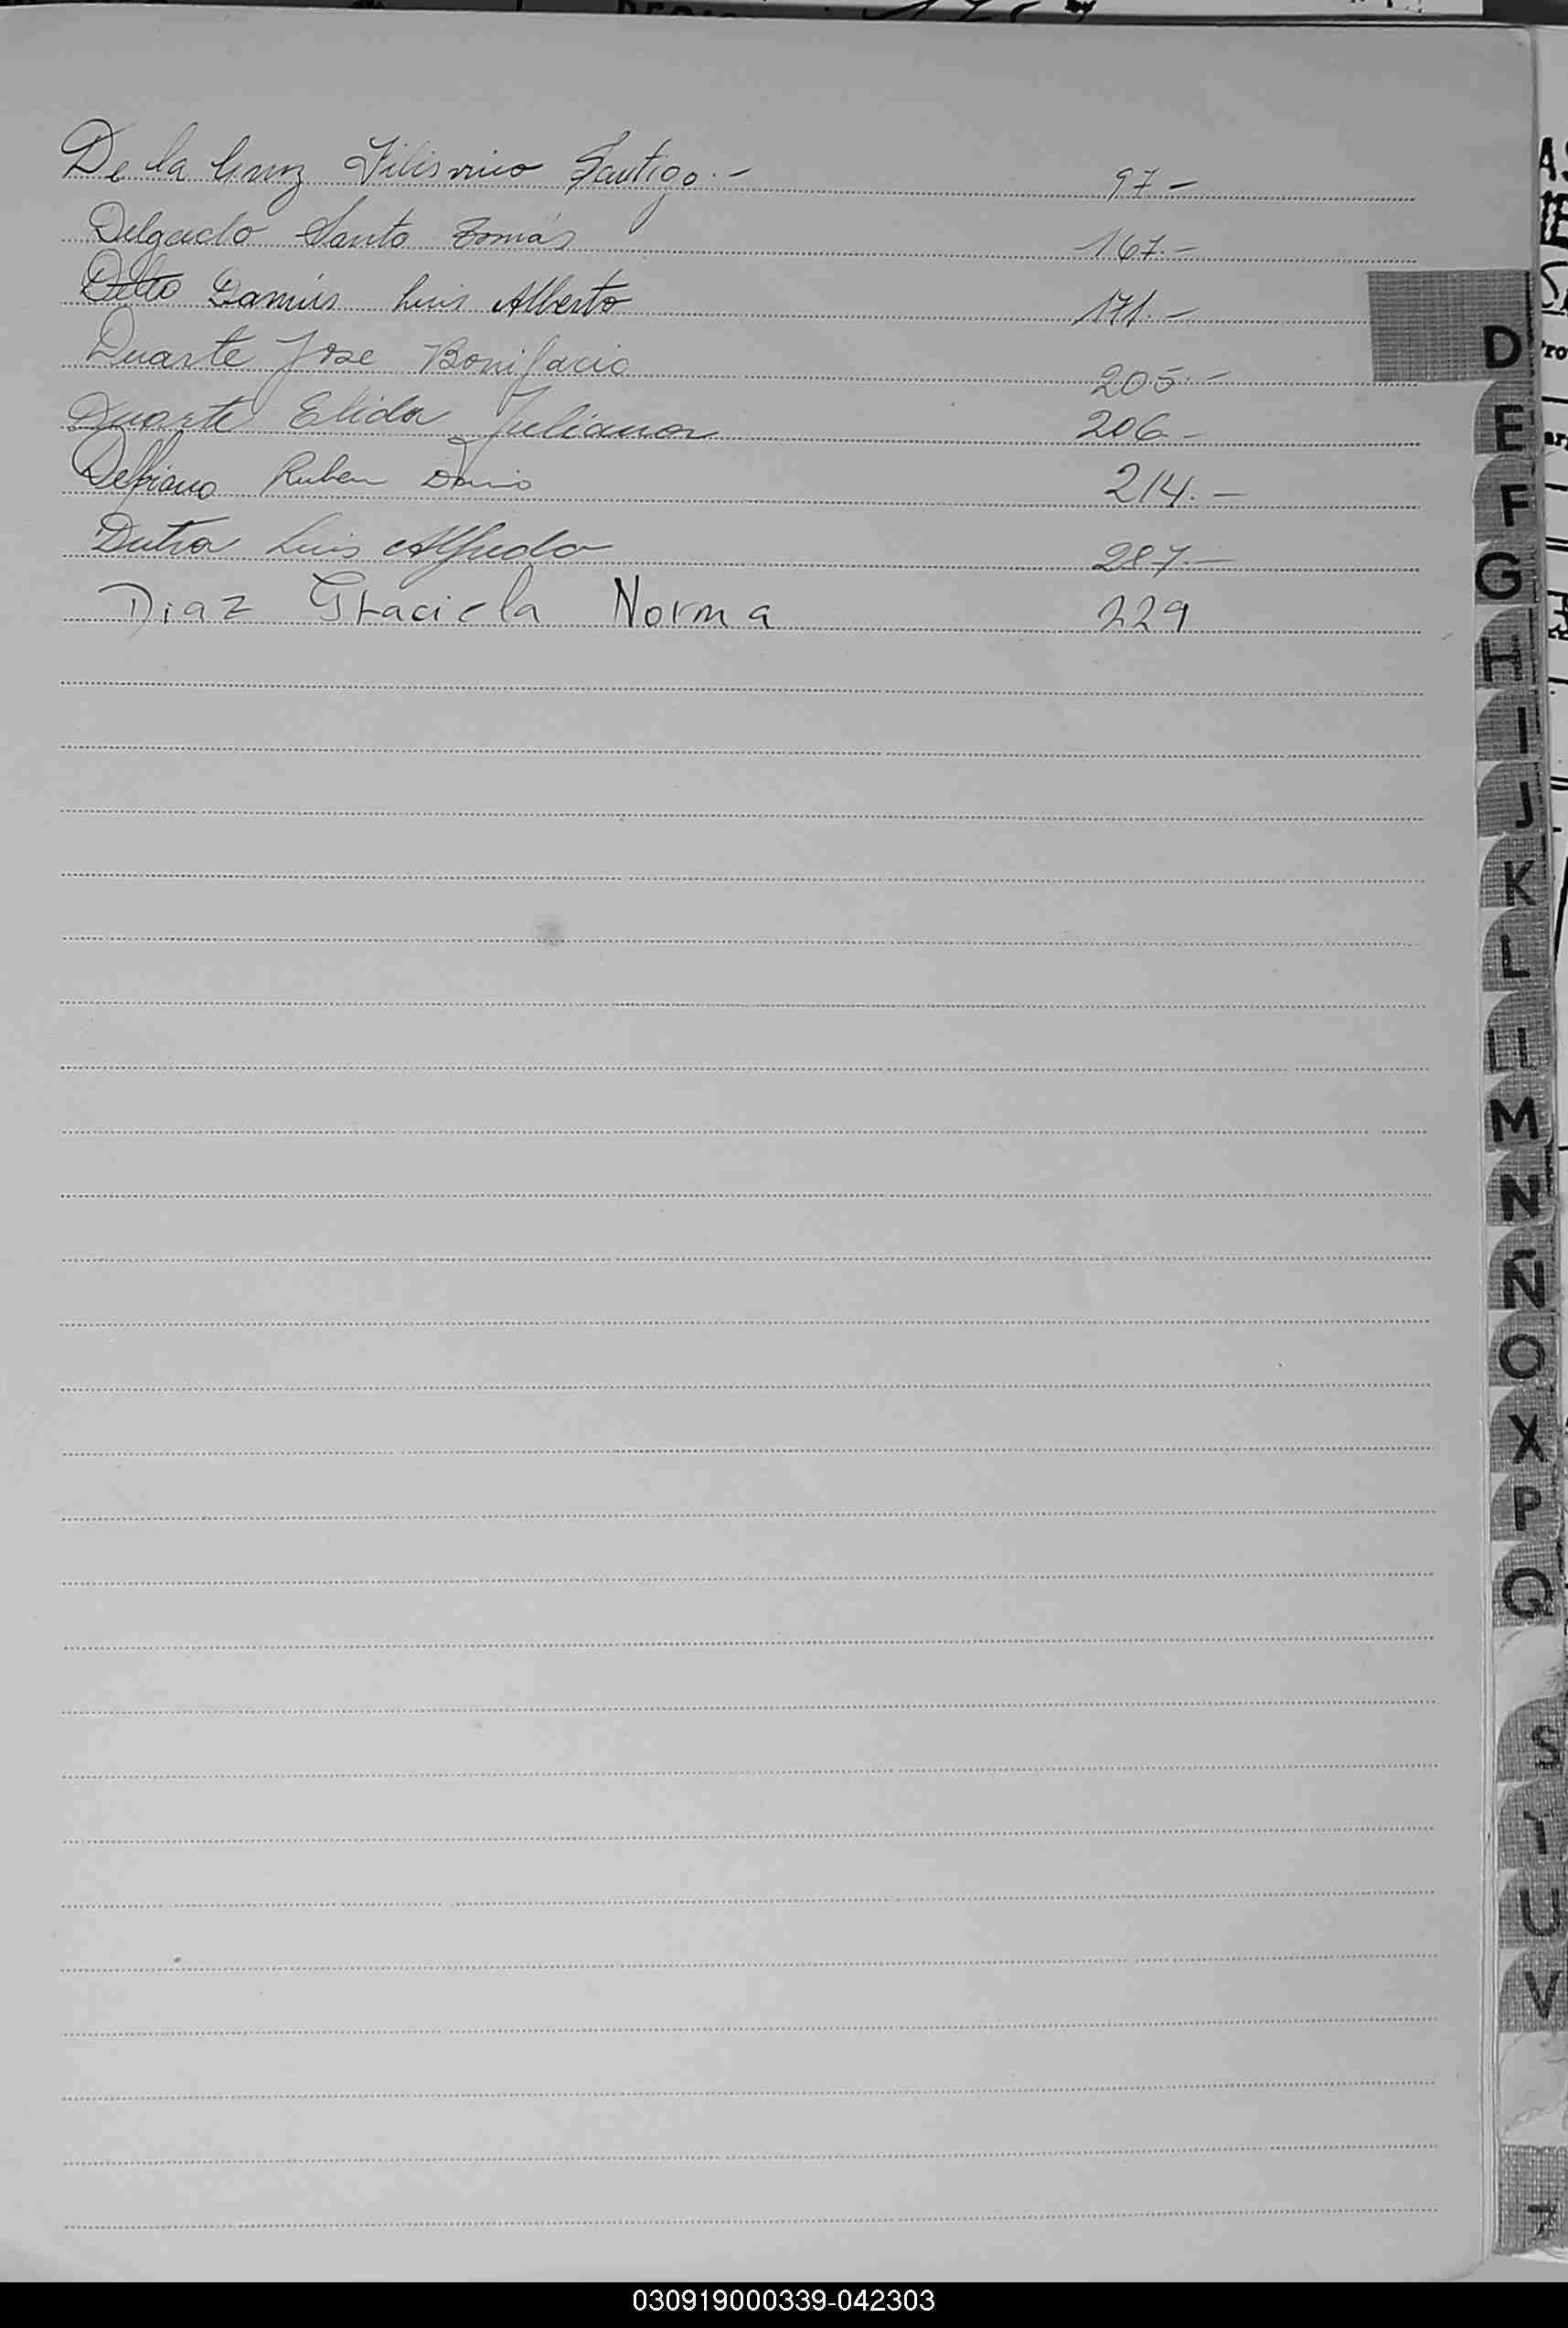 De la Cruz Santigo.- 97-
Delgado Santo Tomás 167.-
Luis Alberto 171.-
Duarte Jose Bonifacio 205.-
Duarte Elida Juliana 206-
Ruben Dario 214.-
Dutra Luis Alfredo 287.-
Diaz Graciela Norma 229
D
E
F
G
H
I
J
K
L
M
N
Ñ
O
X
P
Q
S
U
V
030919000339-042303